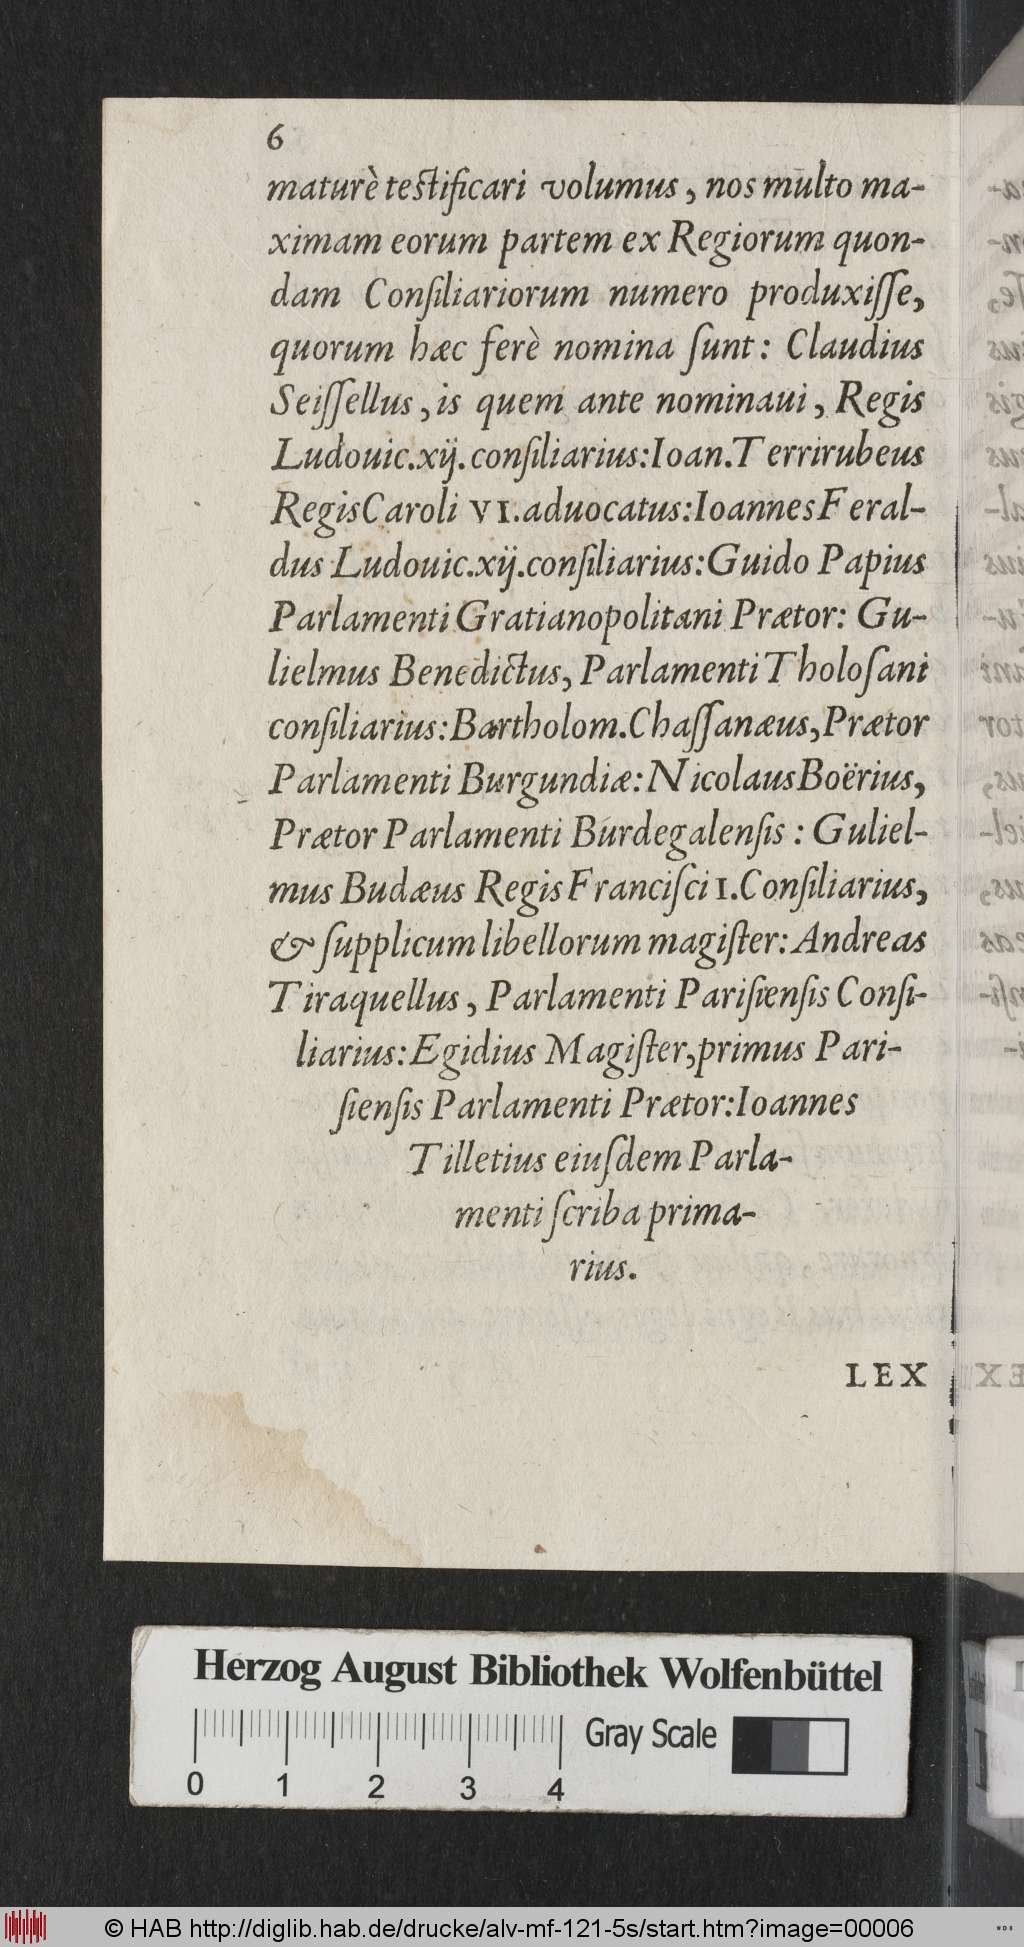 6
maturè teſtificari volumus, nos multo ma-
ximam eorum partem ex Regiorum quon-
dam Conſiliariorum numero produxiſſe,
quorum hæc ferè nomina ſunt: Claudius
Seiſſellus, is quem ante nominaui, Regis
Ludouic.xij. conſiliarius: Ioan. Terrirubeus
Regis Caroli VI. aduocatus: Ioannes Feral-
dus Ludouic.xij. conſiliarius: Guido Papius
Parlamenti Gratianopolitani Prætor: Gu-
lielmus Benedictus, Parlamenti Tholoſani
conſiliarius: Bartholom. Chaſſanæus, Prætor
Parlamenti Burgundiæ: Nicolaus Boërius,
Prætor Parlamenti Burdegalenſis: Guliel-
mus Budæus Regis Franciſci I. Conſiliarius,
& ſupplicum libellorum magiſter: Andreas
Tiraquellus, Parlamenti Pariſienſis Conſi-
liarius: Egidius Magiſter, primus Pari-
ſienſis Parlamenti Prætor: Ioannes
Tilletius eiuſdem Parla-
menti ſcriba prima-
rius.
LEX
Herzog August Bibliothek Wolfenbüttel
Gray Scale
0 1 2 3 4
© HAB http://diglib.hab.de/drucke/alv-mf-121-5s/start.htm?image=00006